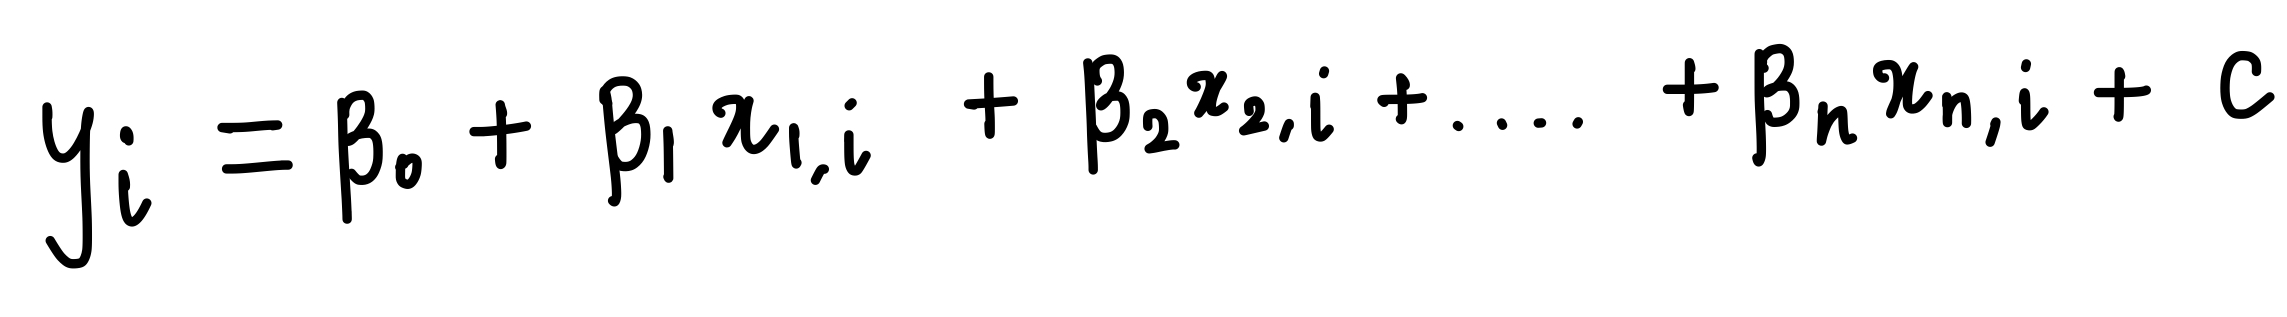 yᵢ = β₀ + β₁x₁,ᵢ + β₂x₂,ᵢ + .... + βₙxₙ,ᵢ + C